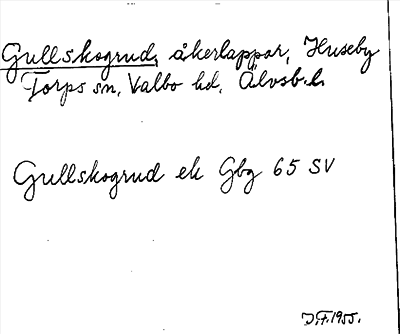 Gullskogrud, åkerlappar, Huseby
Torps sn, Valbo hd, Älvsb. l.
Gullskogrud ek Gbg 65 SV
J.F. 1955.